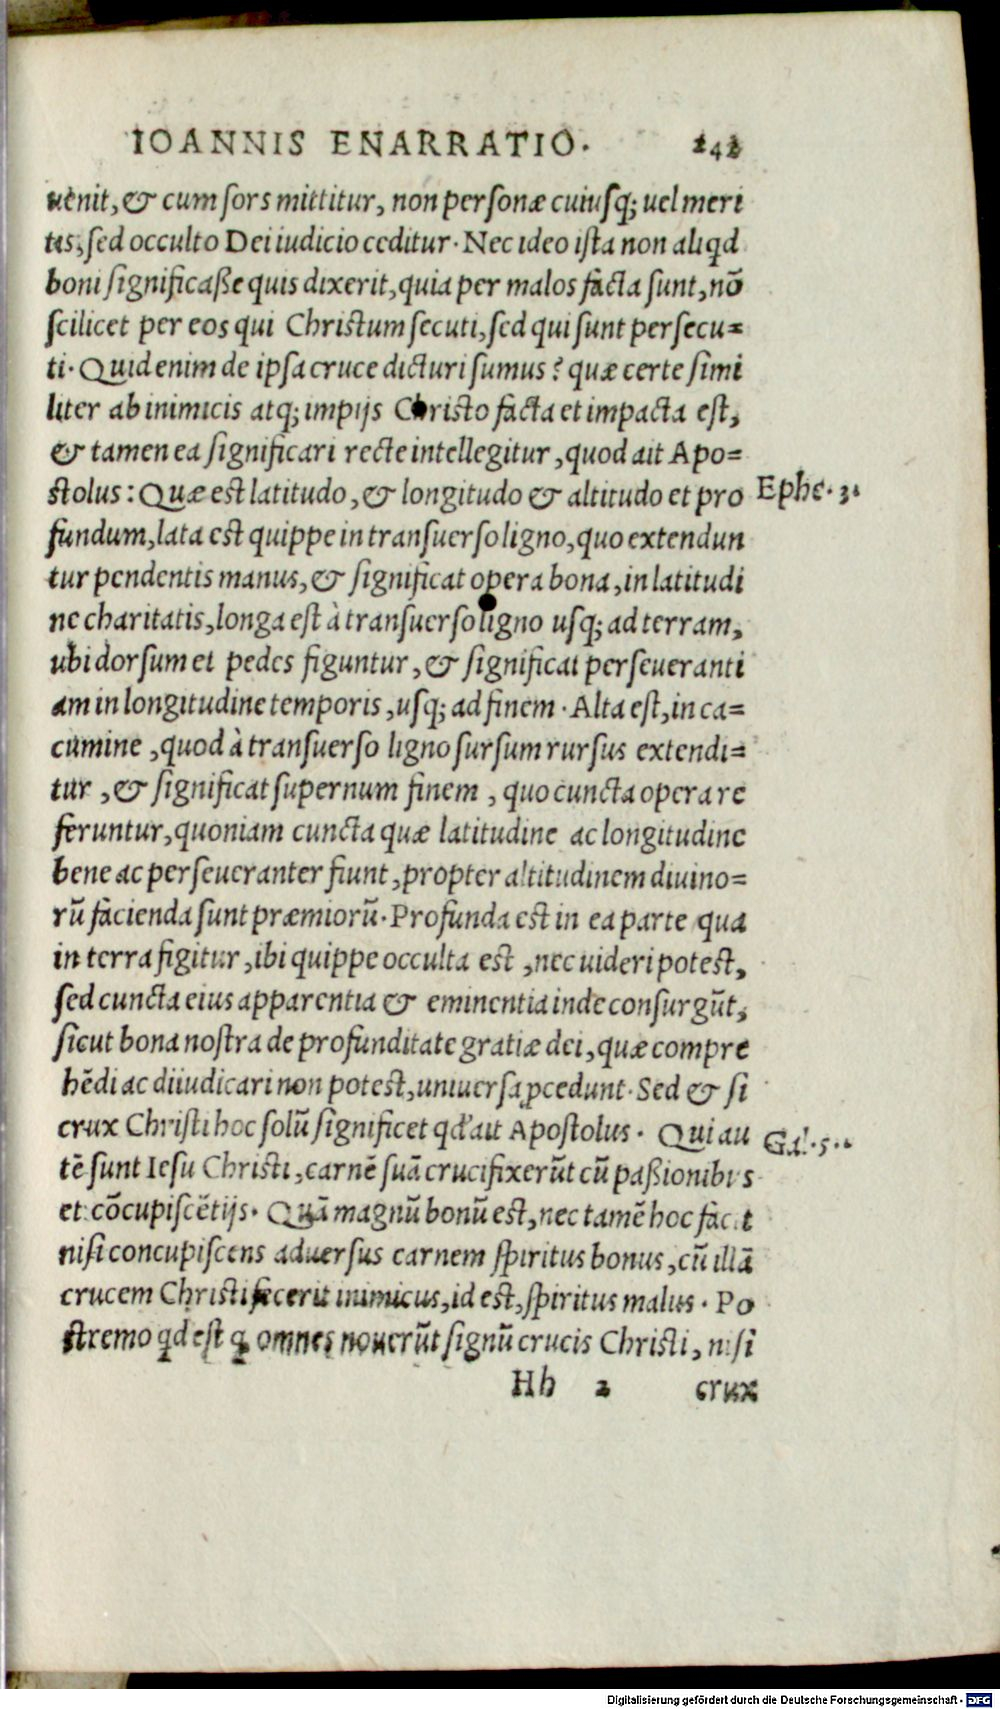 IOANNIS ENARRATIO. 242
uenit, & cum sors mittitur, non personæ cuiusq; uel meri
tis, sed occulto Dei iudicio ceditur. Nec ideo ista non aliqd
boni significaße quis dixerit, quia per malos facta sunt, nō
scilicet per eos qui Christum secuti, sed qui sunt persecu=
ti. Quid enim de ipsa cruce dicturi sumus? quæ certe simi
liter ab inimicis atq; impijs Christo facta et impacta est,
& tamen ea significari recte intellegitur, quod ait Apo=
stolus: Quæ est latitudo, & longitudo & altitudo et pro
Ephe. 3.
fundum, lata est quippe in transuerso ligno, quo extendun
tur pendentis manus, & significat opera bona, in latitudi
ne charitatis, longa est à transuerso ligno usq; ad terram,
ubi dorsum et pedes figuntur, & significat perseueranti
am in longitudine temporis, usq; ad finem. Alta est, in ca=
cumine, quod à transuerso ligno sursum rursus extendi=
tur, & significat supernum finem, quo cuncta opera re
feruntur, quoniam cuncta quæ latitudine ac longitudine
bene ac perseueranter fiunt, propter altitudinem diuino=
rū facienda sunt præmiorū. Profunda est in ea parte qua
in terra figitur, ibi quippe occulta est, nec uideri potest,
sed cuncta eius apparentia & eminentia inde consurgūt,
sicut bona nostra de profunditate gratiæ dei, quæ compre
hēdi ac diiudicari non potest, uniuersa ꝓcedunt. Sed & si
crux Christi hoc solū significet qd' ait Apostolus. Qui au
Gal. 5.
tē sunt Iesu Christi, carnē suā crucifixerūt cū paßionibus
et cōcupiscētijs. Quā magnū bonū est, nec tamē hoc facit
nisi concupiscens aduersus carnem spiritus bonus, cū illā
crucem Christi fecerit inimicus, id est, spiritus malus. Po
stremo qd est q omnes nouerūt signū crucis Christi, nisi
Hh 2 crux
Digitalisierung gefördert durch die Deutsche Forschungsgemeinschaft - DFG